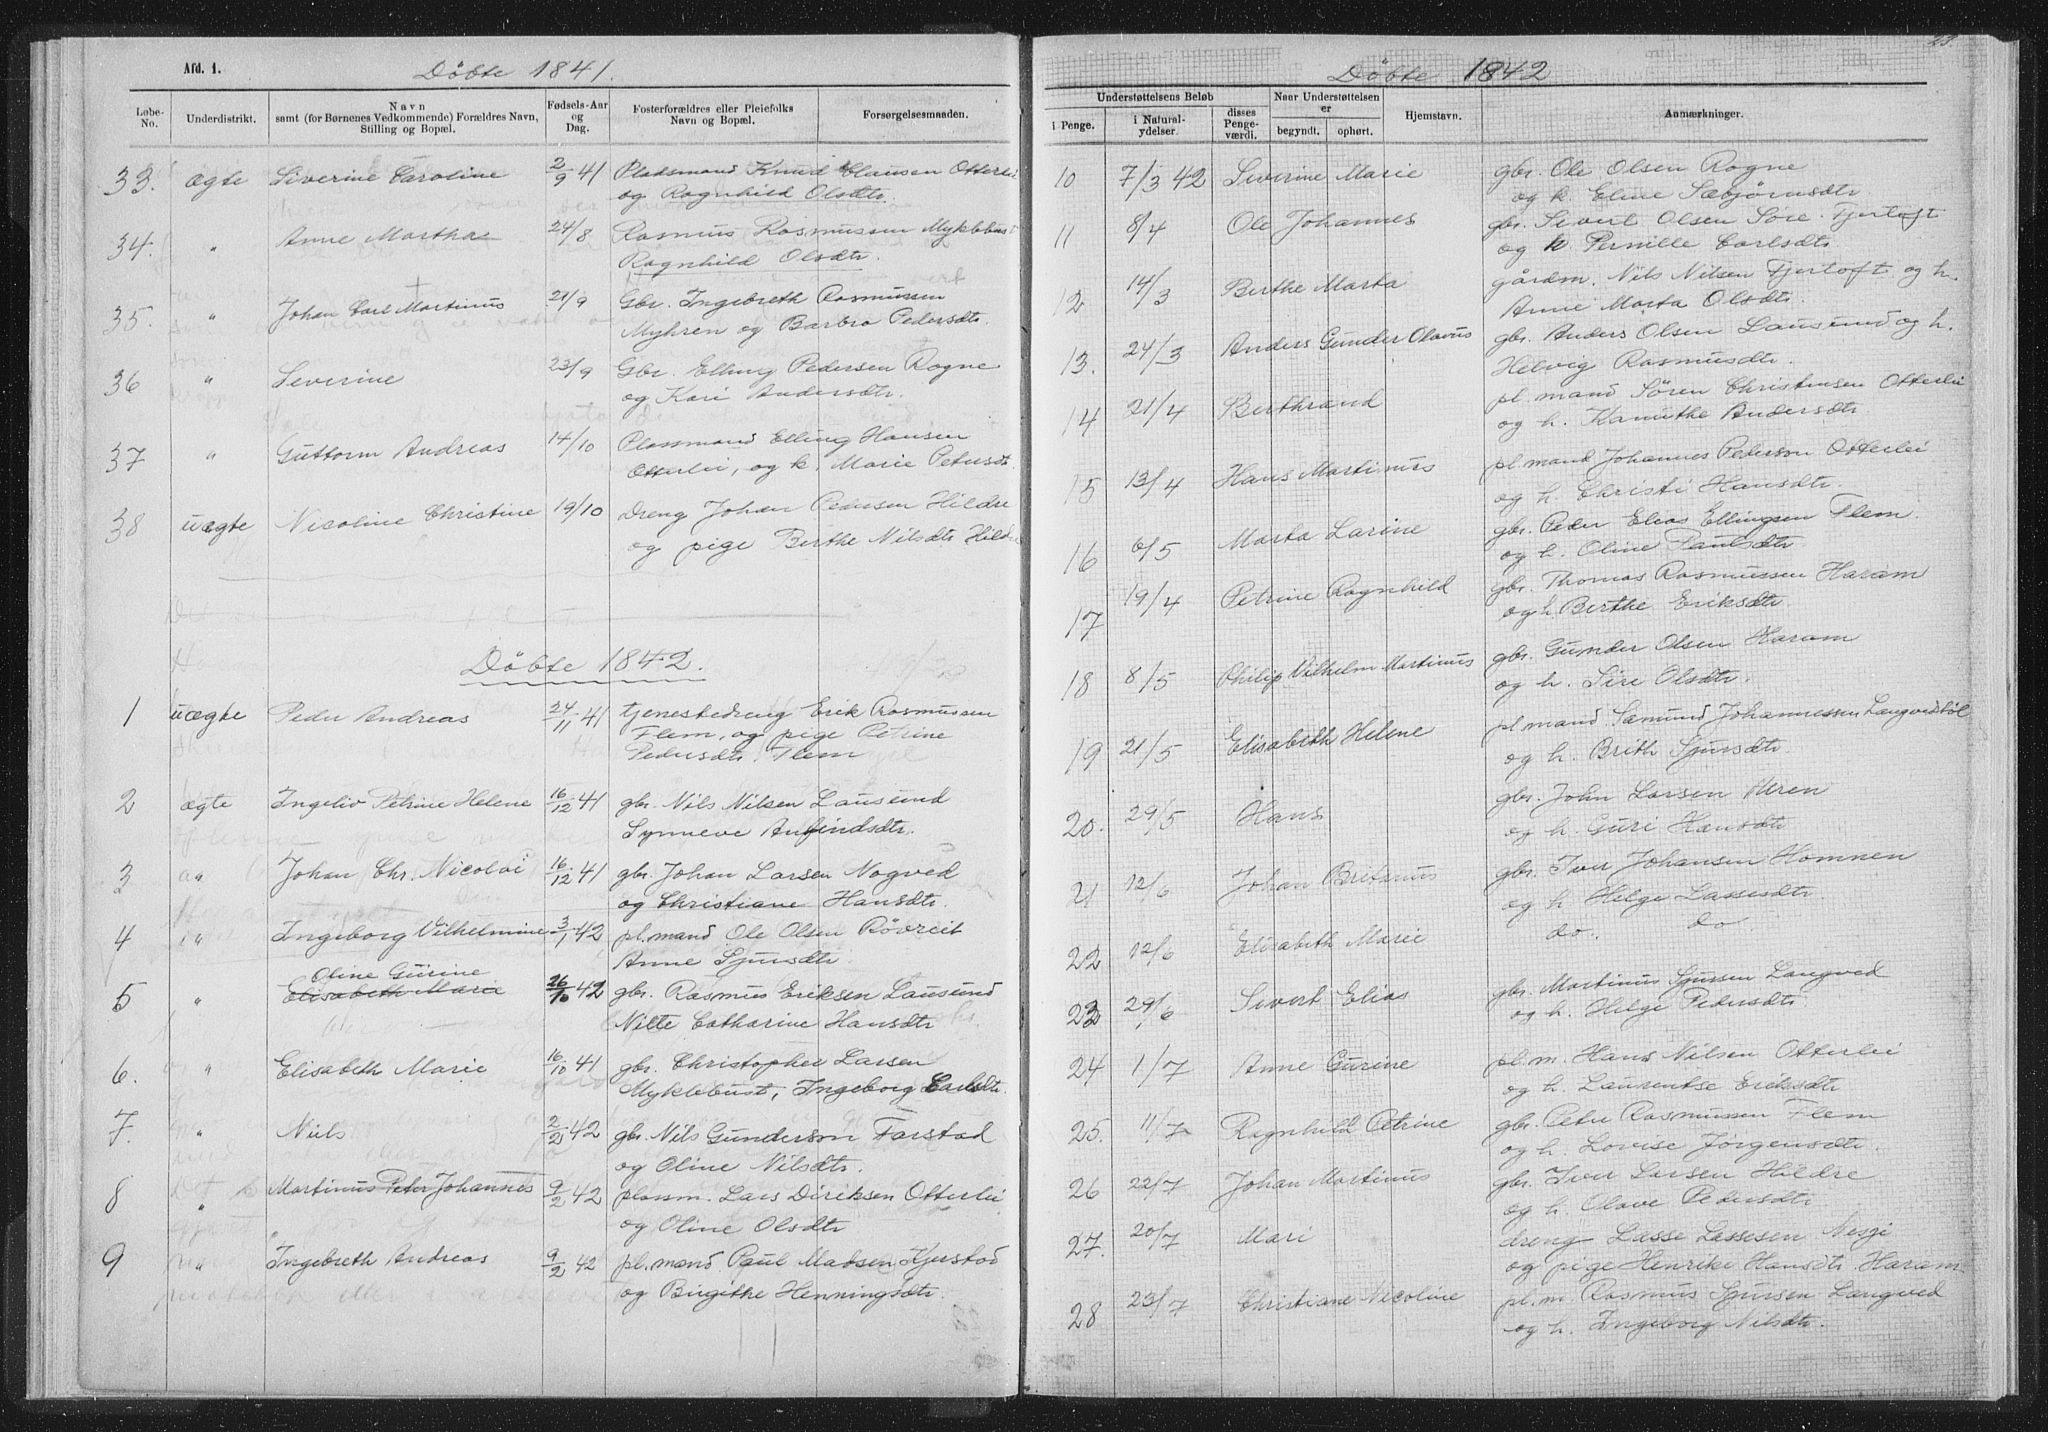 Afd. 1.
Döbte 1841.
Løbe-No.
Underdistrikt.
Navn
samt (for Børnenes Vedkommende) Forældres Navn,
Stilling og Bopæl.
Fødsels-Aar
og
Dag.
Fosterforældres eller Pleiefolks
Navn og Bopæl.
Forsørgelsesmaaden.
33. ægte Siverine Caroline 2/9 41 Pladsmand Knud Clausen Otterlei
og Ragnhild Olsdtr.
34. " Anne Martha 24/8 Rasmus Rasmussen Myklebust
Ragnhild Olsdtr.
35. " Johan Carl Martinus 21/9 Gbr. Ingebreth Rasmussen
Myhren og Barbro Pedersdtr.
36 " Severine 23/9 Gbr. Elling Pedersen Rogne
og Kari Andersdtr.
37 " Guttorm Andreas 14/10 Plassmand Elling Hansen
Otterlei, og k. Marie Petersdtr.
38 uægte Nicoline Christine 19/10 Dreng Johan Pedersen Hildre
og pige Berthe Nilsdtr Hildre
Döbte 1842.
1 uægte Peder Andreas 24/11 41 tjenestedreng Erik Rasmussen
Flem, og pige Petrine
Pedersdtr. Flem
2 ægte Ingeliv Petrine Helene 16/12 41 gbr. Nils Nilsen Lausund
Synneve Anfindsdtr.
3 " Johan Chr. Nicolai 16/12 41 gbr. Johan Larsen Nogved
og Christiane Hansdtr.
4 " Ingeborg Vilhelmine 3/1 42 pl.mand Ole Olsen Rövreit
Anne Sjursdtr.
Oline Gurine
5 " Elisabeth Marie 26/10 42 gbr. Rasmus Eriksen Lausund
Nille Catharine Hansdtr.
6. " Elisabeth Marie 16/10 41 gbr. Christopher Larsen
Myklebust, Ingeborg Carlsdtr.
7. " Niels 2/2 42 gbr. Nils Gunderson Farstad
og Oline Nilsdtr.
8 " Martinus Peter Johannes 9/2 42 plassm. Lars Diriksen Otterlei
og Oline Olsdtr
9 " Ingebreth Andreas 9/2 42 pl.mand Paul Madsen Kjerstad
og Birgithe Henningsdtr.
23.
Döbte 1842
Understøttelsens Beløb
i Penge.
i Natural-
ydelser.
disses
Penge-
værdi.
Naar Understøttelsen
er
begyndt.
ophørt.
Hjemstavn.
Anmærkninger.
10 7/3 42 Siverine Marie gbr. Ole Olsen Rogne
og k. Eline Sæbjörnsdtr
11 8/4 Ole Johannes gbr. Sivert Olsen Söre-Fjertoft
og k Pernille Carlsdtr.
12 14/3 Berthe Marta gårdm. Nils Nilsen Fjertoft og h.
Anne Marta Olsdtr.
13. 24/3 Anders Gunder Olavus gbr. Anders Olsen Lausund og h.
Helvig Rasmusdtr.
14 21/4 Berthrand pl. mand Sören Christensen Otterlei
og h. Kanuthe Andersdtr
15 13/4 Hans Martinus pl.mand Johannes Pederson Otterlei
og h. Christi Hansdtr.
16 6/5 Marta Larine gbr. Peder Elias Ellingsen Flem.
og h. Oline Paulsdtr.
17 19/4 Petrine Ragnhild gbr. Thomas Rasmussen Haram
og h. Berthe Eriksdtr.
18 8/5 Philip Vilhelm Martinus gbr. Gunder Olsen Haram
og h. Sire Olsdtr.
19 21/5 Elisabeth Helene pl.mand. Samund Johannessen Langvedböl
og h. Brith Sjursdtr.
20. 29/5 Hans gbr. John Larsen Uren
og h. Guri Hansdtr
21 12/6 Johan Britanus gbr. Iver Johansen Homnen
og h. Helge Lassesdtr
22 12/6 Elisabeth Marie do. do
23 29/6 Sivert Elias gbr. Martinus Sjursen Langved
og h. Helge Pedersdtr.
24 1/7 Anne Gurine pl.m. Hans Nilsen Otterlei
og h. Laurentse Eriksdtr
25. 11/7 Ragnhild Petrine gbr. Peter Rasmussen Flem
og h. Lovise Jørgensdtr.
26 22/7 Johan Martinus gbr. Iver Larsen Hildre
og h. Olave Pedersdtr
27. 20/7 Mari dreng Lasse Lassesen Nesgi
og pige Henrike Hansdtr. Haram
28 23/7 Christiane Nicoline pl.m. Rasmus Sjursen Langved
og h. Ingeborg Nilsdtr.